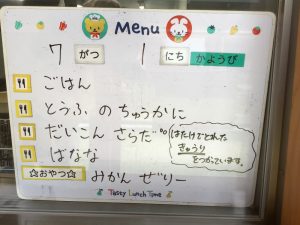 Menu
7 がつ 1 にち かようび
ごはん
とうふ の ちゅうかに
だいこん さらだ
はたけでとれた
きゅうり
をつかっています。
ばなな
☆おやつ☆ みかん ぜりー
Tasty Lunch Time